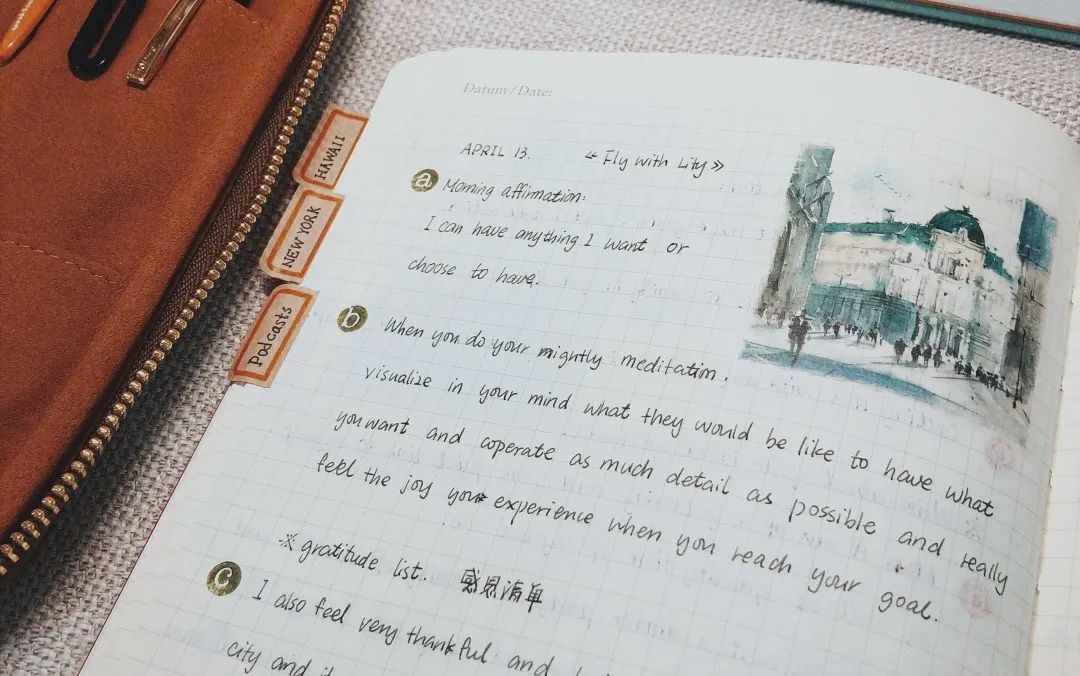 Datum / Date:
APRIL 13. 《Fly with Lity》
a Morning affirmation:
I can have anything I want or
choose to have.
b When you do your mightly meditation,
visualize in your mind what they would be like to have what
you want and coperate as much detail as possible and really
feel the joy your experience when you reach your goal.
※ gratitude list. 感恩清单
c I also feel very thankful and
city and
HAWAII
NEW YORK
Podcasts